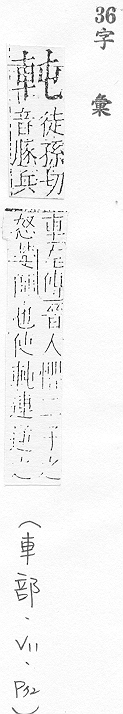 36字彙
軘
徒孫切
音豚兵
車左傳晉人懼二子之
怒楚師也使軘車逆之
(車部.V11.P32)